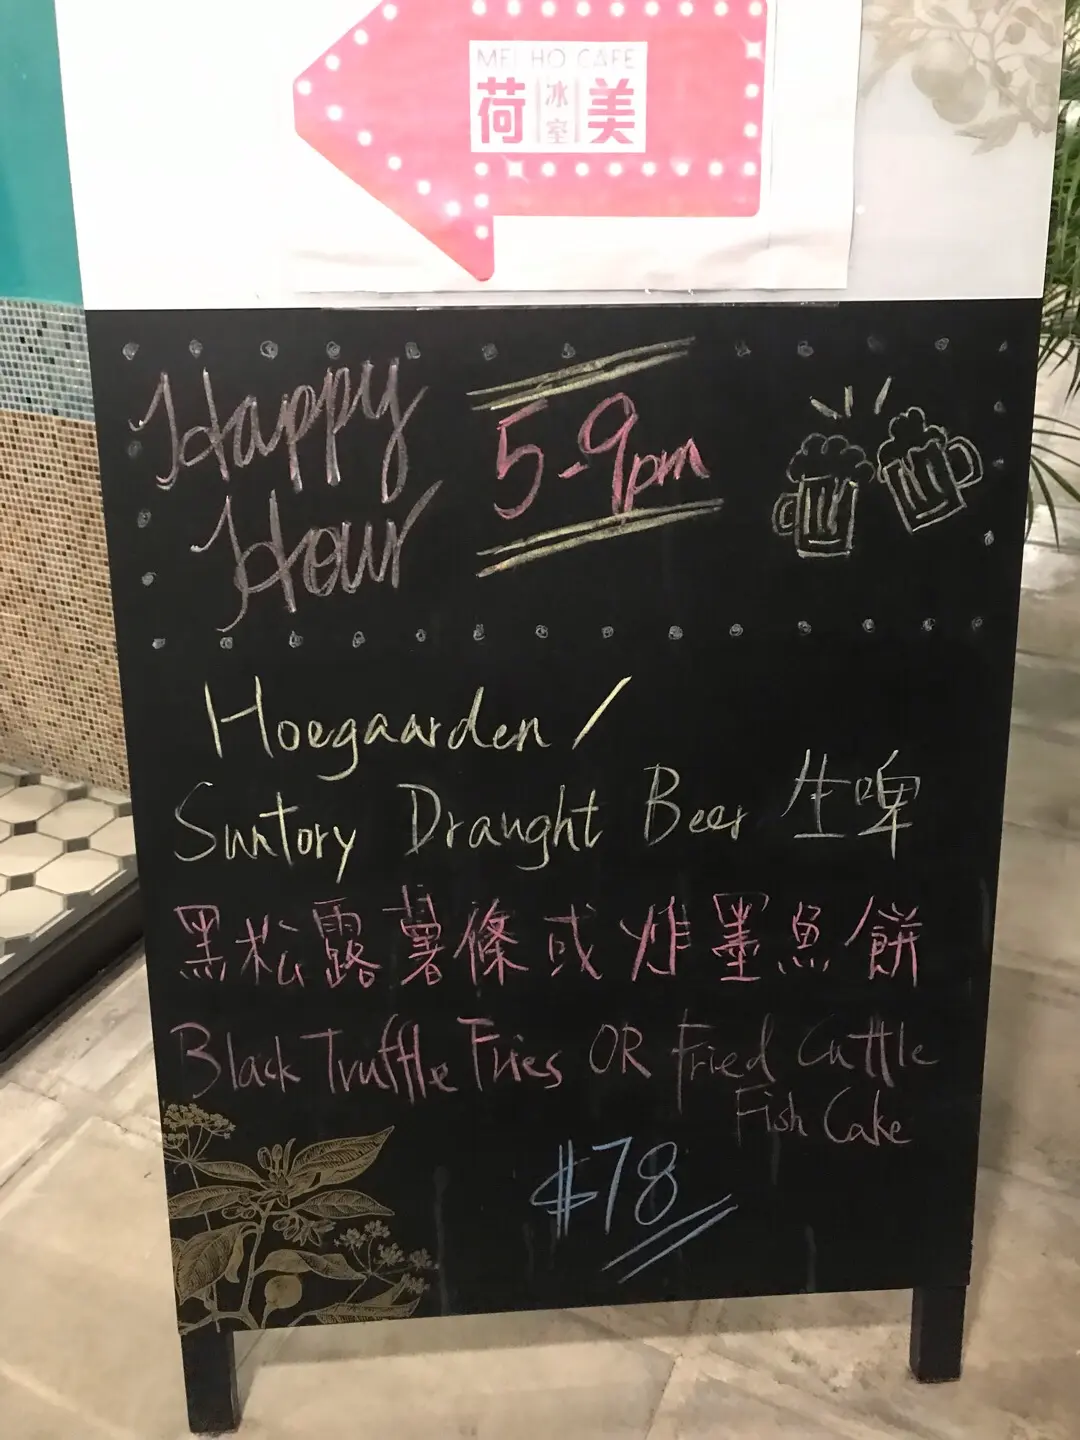 MEI HO CAFE
荷冰室美
Happy
Hour
5-9pm
Hoegaarden /
Suntory Draught Beer 生啤
黑松露薯條或炸墨魚餅
Black Truffle Fries OR Fried Cuttle
Fish Cake
$78